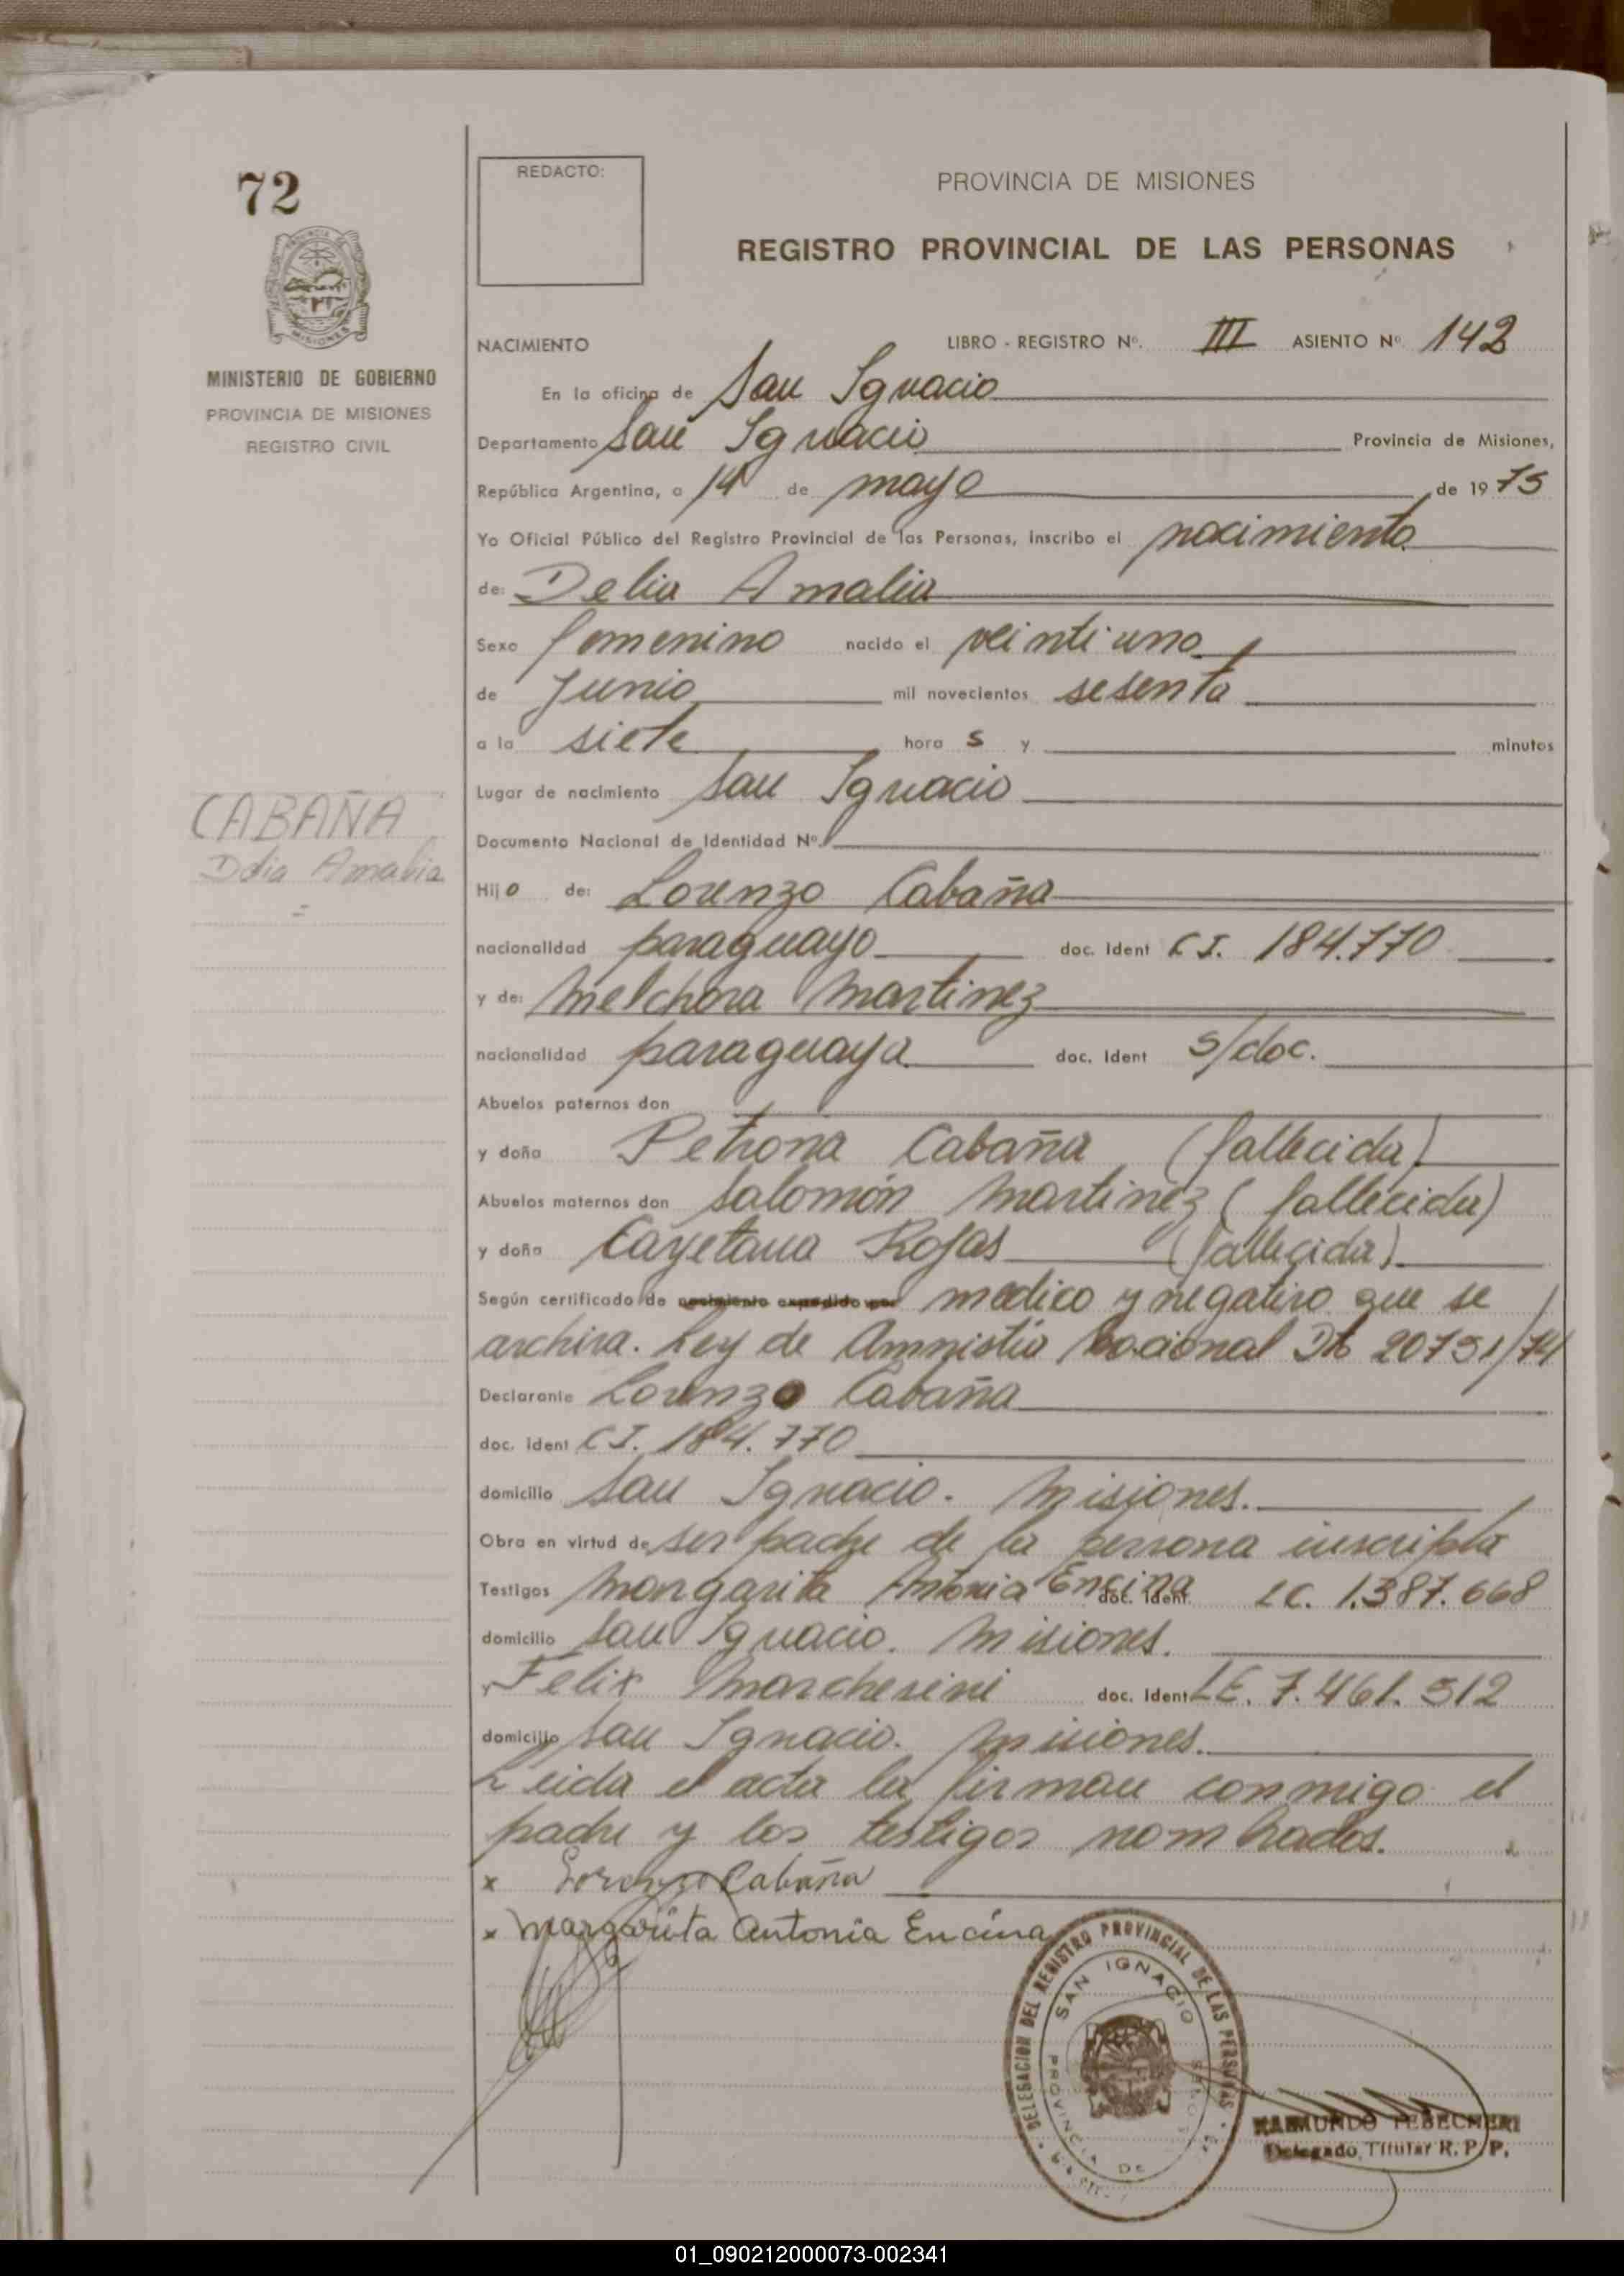 72
REDACTO:
PROVINCIA DE MISIONES
REGISTRO PROVINCIAL DE LAS PERSONAS
MISIONES
MINISTERIO DE GOBIERNO
PROVINCIA DE MISIONES
REGISTRO CIVIL
NACIMIENTO LIBRO - REGISTRO Nº. III ASIENTO Nº 142
En la oficina de San Ignacio
Departamento San Ignacio Provincia de Misiones,
República Argentina, a 14 de mayo de 1975
Yo Oficial Público del Registro Provincial de las Personas, inscribo el nacimiento
de: Delia Amalia
Sexo femenino nacido el veintiuno
de Junio mil novecientos sesenta
a la siete hora s y minutos
Lugar de nacimiento San Ignacio
Documento Nacional de Identidad Nº
CABAÑA
Delia Amalia
Hijo de: Lorenzo Cabaña
nacionalidad paraguayo doc. Ident C I. 184.770
y de: Melchora Martinez
nacionalidad paraguaya doc. Ident s/doc.
Abuelos paternos don
y doña Petrona Cabaña (fallecida)
Abuelos maternos don Salomón Martinez (fallecida)
y doña Cayetana Rojas (fallecida)
Según certificado de nacimiento expedido por medico y negativo que se
archiva. Ley de Amnistia Nacional 20751/74
Declarante Lorenzo Cabaña
doc. ident C I. 184.770
domicilio San Ignacio. Misiones.
Obra en virtud de ser padre de la persona inscripta
Testigos Margarita Antonia Encina doc. Ident. LC. 1.387.668
domicilio San Ignacio. Misiones.
y Felix Marchesini doc. Ident LE. 7.461.512
domicilio San Ignacio. Misiones.
Leida el acta la firman conmigo el
padre y los testigos nombrados.
x Lorenzo Cabaña
x Margarita Antonia Encina
DELEGACION DEL REGISTRO PROVINCIAL DE LAS PERSONAS
SAN IGNACIO
PROVINCIA DE
RAIMUNDO TEBECHERI
Delegado Titular R. P. P.
01_090212000073-002341